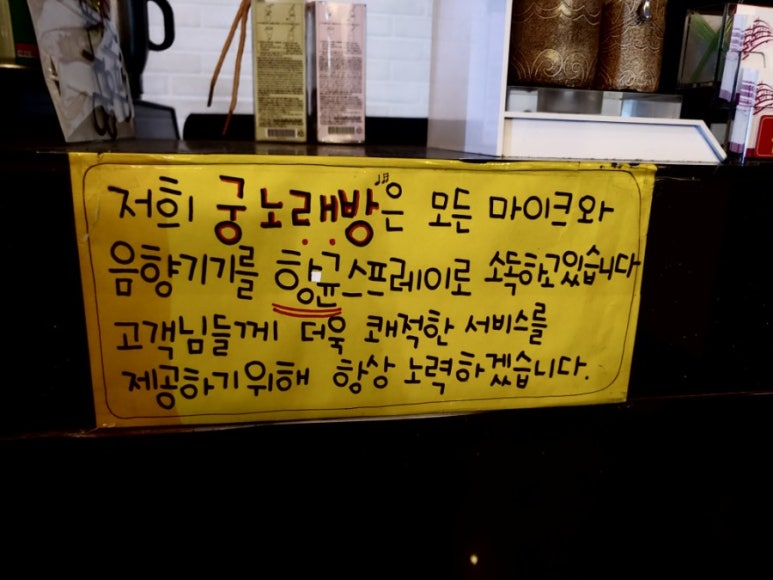 저희 궁노래방은 모든 마이크와
음향기기를 항균스프레이로 소독하고있습니다
고객님들께 더욱 쾌적한 서비스를
제공하기위해 항상 노력하겠습니다.